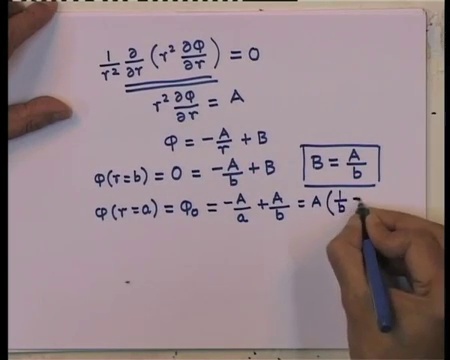 1/r² ∂/∂r (r² ∂φ/∂r) = 0
r² ∂φ/∂r = A
φ = -A/r + B
φ(r=b) = 0 = -A/b + B
B = A/b
φ(r=a) = φ₀ = -A/a + A/b = A(1/b -